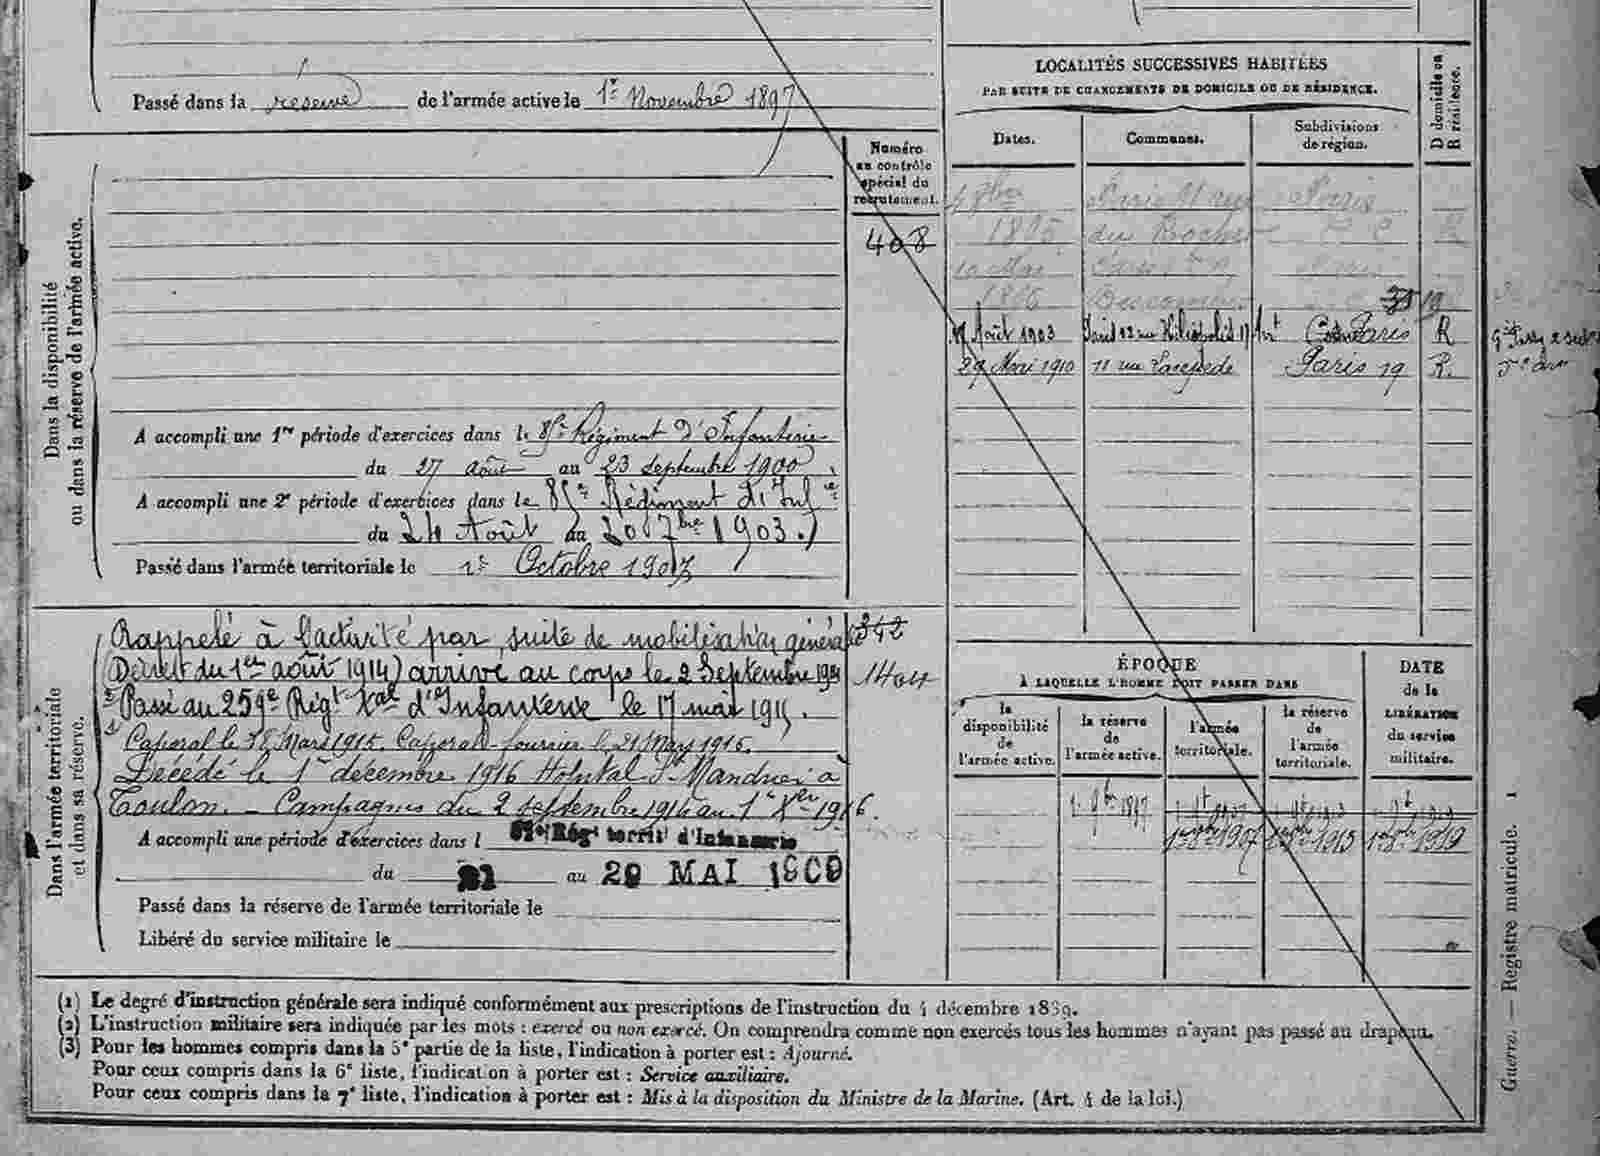 Passé dans la réserve de l'armée active le 1er Novembre 1897
Dans la disponibilité
ou dans la réserve de l'armée active.
Numéro
au contrôle
spécial du
recrutement.
408
A accompli une 1re période d'exercices dans le 85e Régiment d'Infanterie
du 27 août au 23 septembre 1900
A accompli une 2e période d'exercices dans le 85e Régiment d'Infie
du 24 Août au 20 7bre 1903.
Passé dans l'armée territoriale le 1er Octobre 1907
Dans l'armée territoriale
et dans sa réserve.
Rappelé à l'activité par suite de mobilisation générale
(Décret du 1er août 1914) arrivé au corps le 2 Septembre
Passé au 259e Régt tal d'Infanterie le 17 mai 1915.
Caporal le Mars 1915. Caporal-fourrier le 21 May 1915.
Décédé le 1er décembre 1916 Hôpital St Mandrier à
Toulon. — Campagnes du 2 septembre 1914 au 1er Xbre 1916.
342
1404
A accompli une période d'exercices dans l Régt territl d'Infanterie
du 21 au 29 MAI 1909
Passé dans la réserve de l'armée territoriale le
Libéré du service militaire le
LOCALITÉS SUCCESSIVES HABITÉES
PAR SUITE DE CHANGEMENTS DE DOMICILE OU DE RÉSIDENCE.
Dates. Communes. Subdivisions
de région.
D domicile ou
R résidence.
Paris 11 rue Paris
1895 du Rocher
10 Mai Paris
Août 1903 Paris 12 rue Héliopolis 17 Art Paris R
29 Mai 1910 11 rue Lacépède Paris 19 R.
ÉPOQUE
À LAQUELLE L'HOMME DOIT PASSER DANS
la
disponibilité
de
l'armée active.
la réserve
de
l'armée active.
l'armée
territoriale.
la réserve
de
l'armée
territoriale.
DATE
de la
LIBÉRATION
du service
militaire.
1. 9bre 1897
1 8bre 1907 1 8bre 1913 1 8bre 1919
(1) Le degré d'instruction générale sera indiqué conformément aux prescriptions de l'instruction du 4 décembre 1889.
(2) L'instruction militaire sera indiquée par les mots : exercé ou non exercé. On comprendra comme non exercés tous les hommes n'ayant pas passé au drapeau.
(3) Pour les hommes compris dans la 5e partie de la liste, l'indication à porter est : Ajourné.
Pour ceux compris dans la 6e liste, l'indication à porter est : Service auxiliaire.
Pour ceux compris dans la 7e liste, l'indication à porter est : Mis à la disposition du Ministre de la Marine. (Art. 4 de la loi.)
Guerre. — Registre matricule. 1